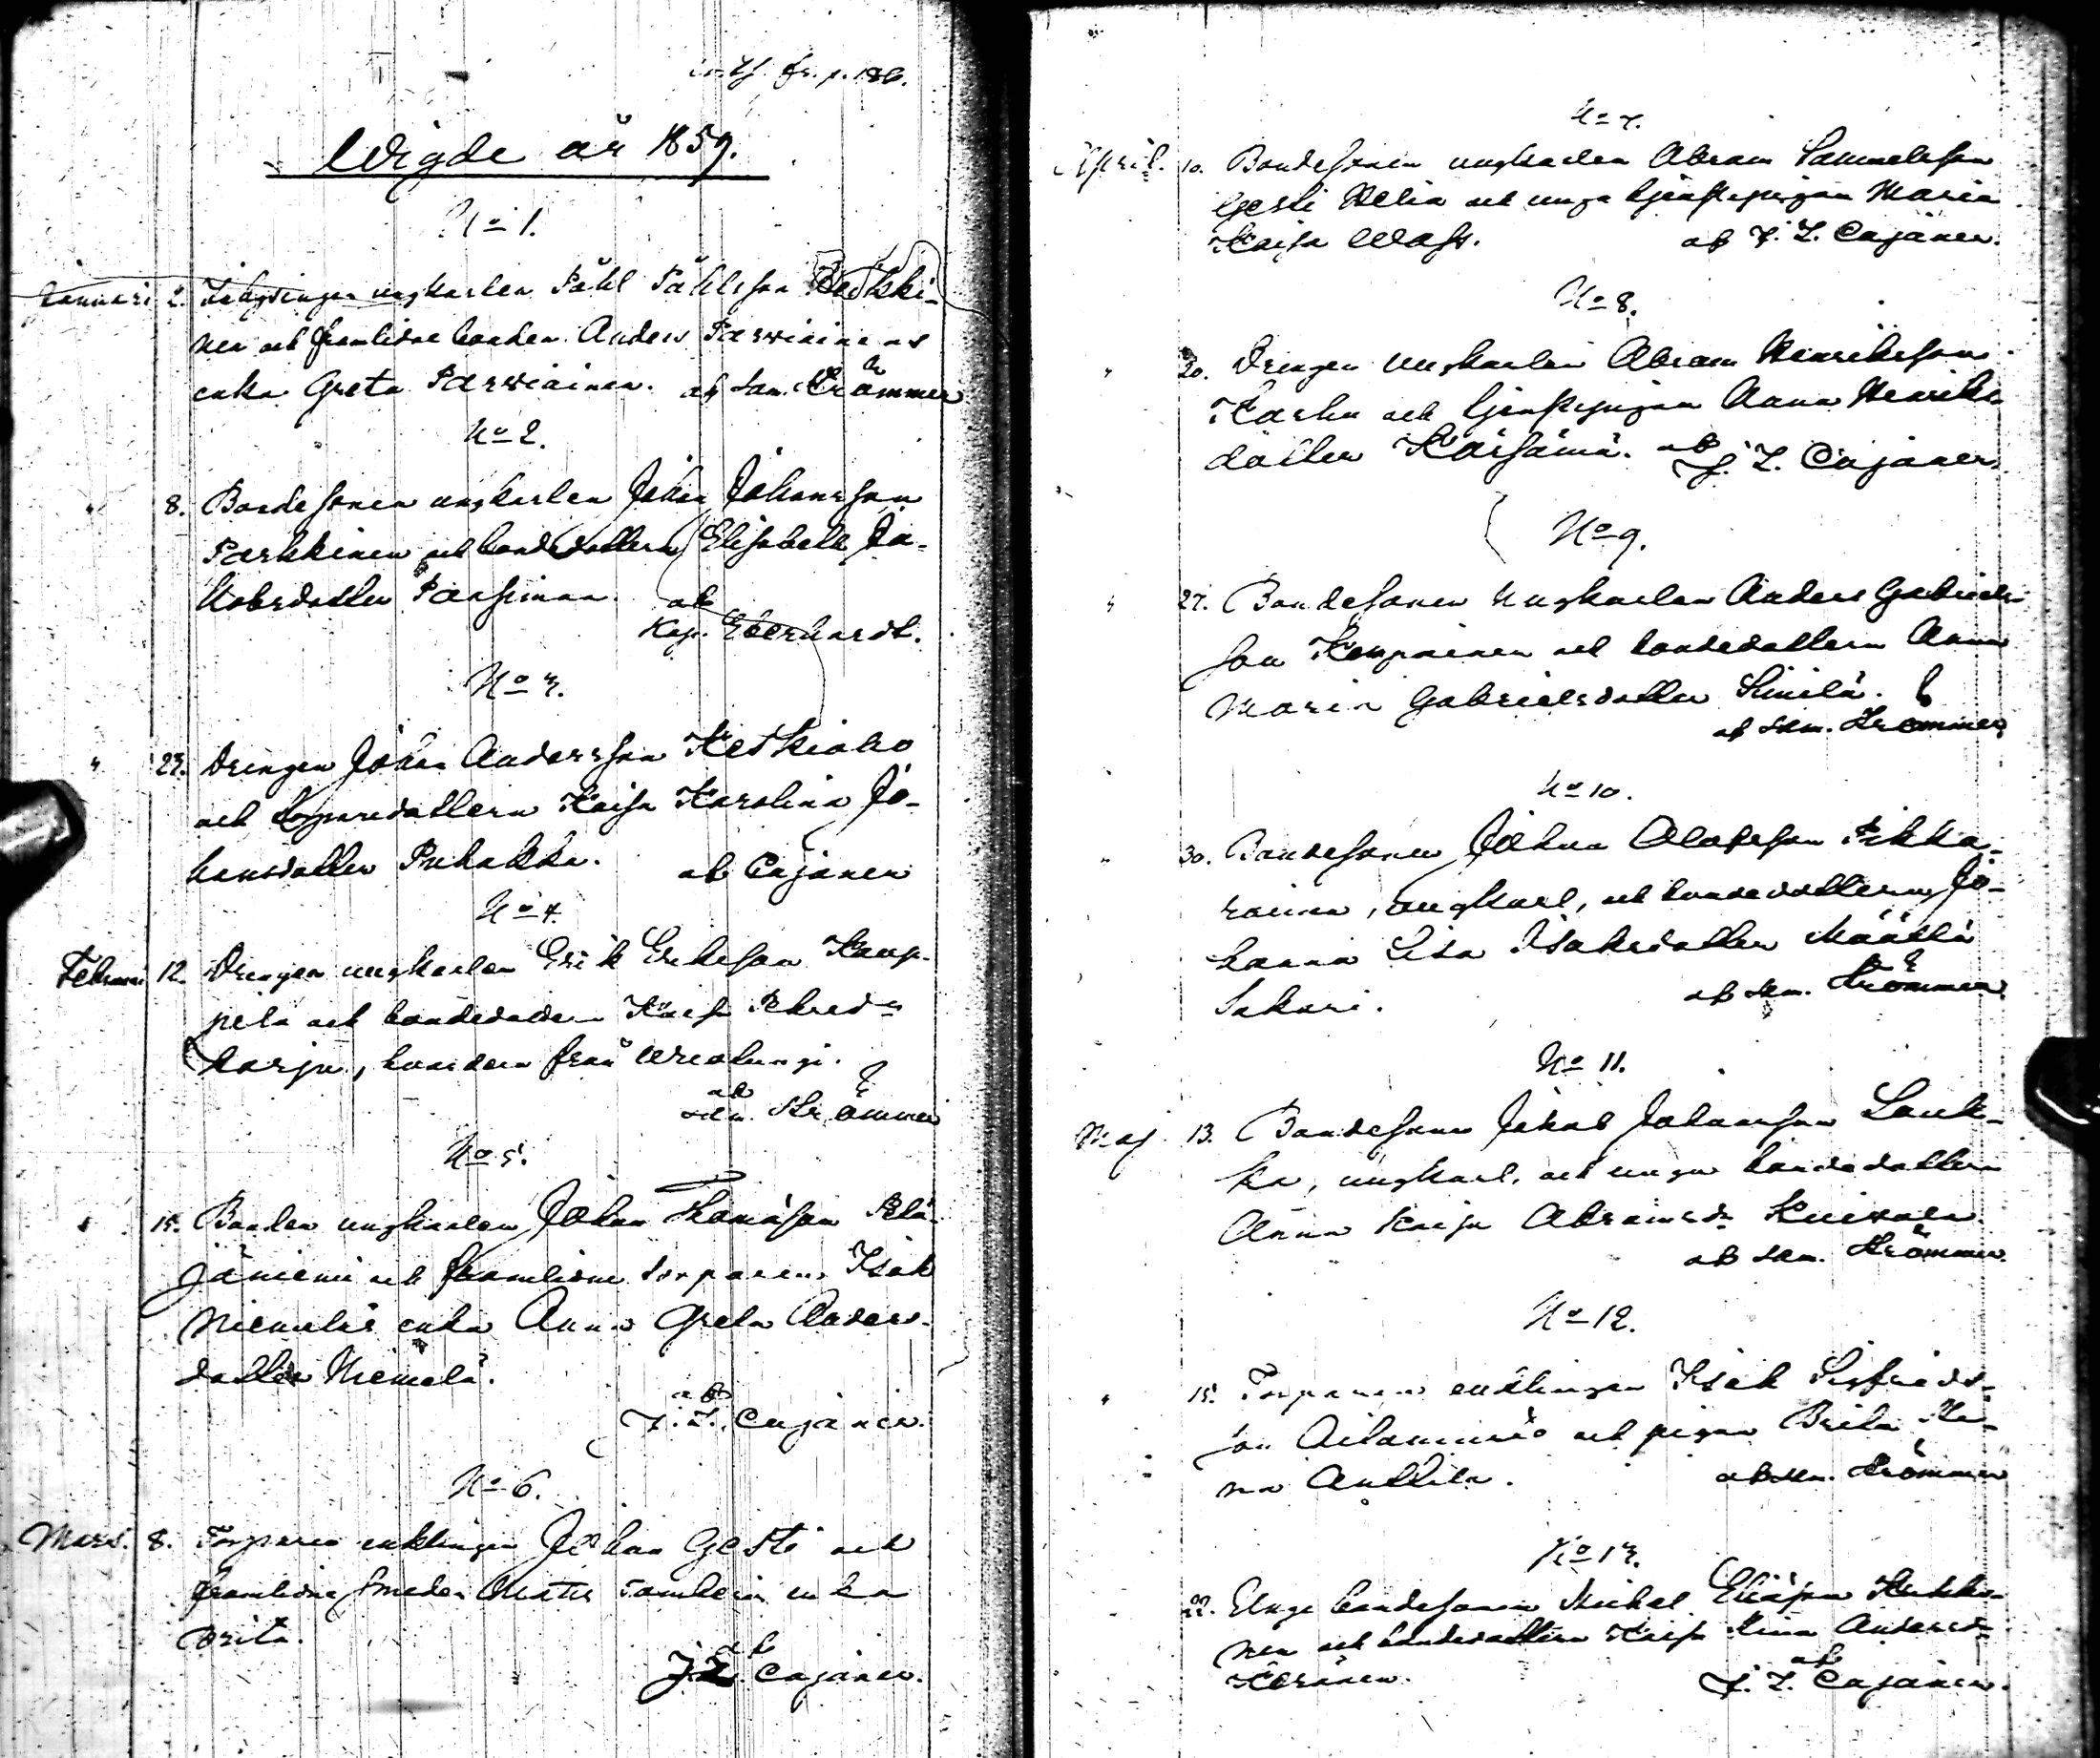 Wigde år 1859.
No 1.
Januari 2. Inhysingen ungkarlen Påhl Påhlsson Heikki-
nen och framlidne bonden Anders Parviainens
enka Greta Parviainen. af Sam. Krömmer
No 2.
" 8. Bondesonen ungkarlen Johan Johansson
Parkkinen och bondedottern Elisabeth Ja-
kobsdotter
af
Kap. Eberhardt.
No 3.
" 23. Drengen Johan Andersson Keskiaho
och torparedottern Kaisa Karolina Jo-
hansdotter Puhakka. af Cajaner
No 4.
Februari 12. Drengen ungkarlen Erik Eriksson Kaup-
pila och bondedottern Kaisa
harju, från
af
Sam. Krömmer
No 5.
" 15. Bonden ungkarlen Johan Thomasson Petä-
jäniemi och framlidne torparen Isak
Niemeläs enka Anna Greta Anders-
dotter Niemelä.
af
J. L. Cajaner.
No 6.
Mars. 8. Torparen enklingen Johan Gesti och
framlidne smeden Matts enka
Brita.
af
J. L. Cajaner.
No 7.
April. 10. Bondesonen ungkarlen Abram Samuelsson
Gesti och unga tjenstepigan Maria
Kaisa Wass. af J. L. Cajaner.
No 8.
" 20. Drengen ungkarlen Abram Henriksson
Karhu och tjenstepigan Anna Henriks
dotter Kärsämä. af
J. L. Cajaner.
No 9.
" 27. Bondesonen ungkarlen Anders Gabriels-
son Kompainen och bondedottern Anna
Maria Gabrielsdotter Similä.
af Sam. Krömmer
No 10.
" 30. Bondesonen Johan Olofsson Pikka-
rainen, ungkarl, och bondedottern Jo-
hanna Lisa Isaksdotter Määttä
Sakari. af Sam. Krömmer
No 11.
Maj. 13. Bondesonen Jakob Johansson Lauk-
ka, ungkarl, och unga bondedottern
Anna Kaisa Abramsdr Kuivala.
af Sam. Krömmer.
No 12.
" 15. Torparen enklingen Isak Sigfrids-
son och pigan Brita Ste-
na Anttila. af Sam. Krömmer
No 13.
" 22. Unge bondesonen Mickel Eliasson Heikki-
nen och bondedottern Kaisa Stina Andersdr
Keränen. af
J. L. Cajaner.